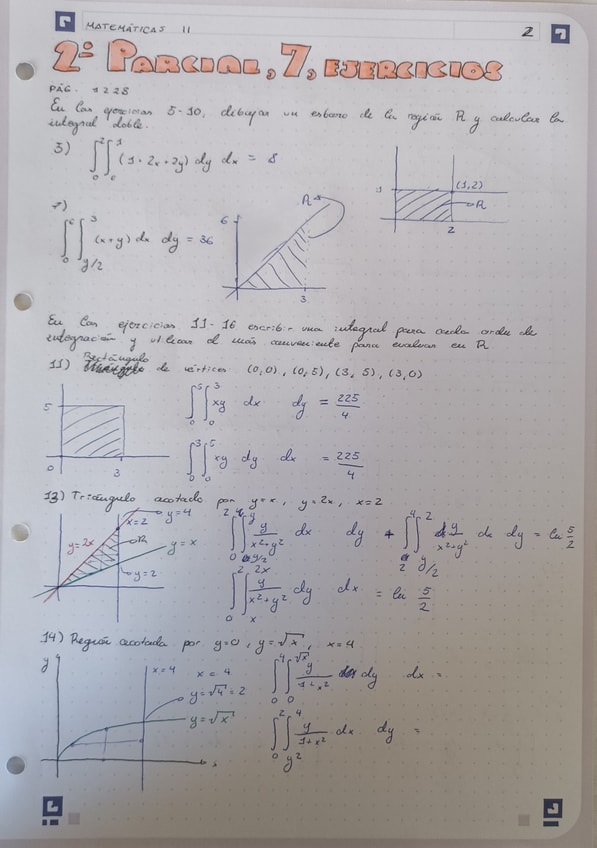 MATEMÁTICAS II
2
2º PARCIAL, 7, EJERCICIOS
PÁG. 1228
En los ejercicios 5-10, dibujar un esbozo de la región R y calcular la
integral doble.
3) ∫₀² ∫₀¹ (1 + 2x + 2y) dy dx = 8
1
(1,2)
R
2
7) ∫₀⁶ ∫_{y/2}³ (x+y) dx dy = 36
6
R
3
En los ejercicios 11-16 escribir una integral para cada orden de
integración y utilizar el más conveniente para evaluar en R
11) Rectángulo de vértices (0,0), (0,5), (3,5), (3,0)
5
0
3
∫₀⁵ ∫₀³ xy dx dy = 225/4
∫₀³ ∫₀⁵ xy dy dx = 225/4
13) Triángulo acotado por y=x, y=2x, x=2
y=4
x=2
R
y=2x
y=x
y=2
∫₀² ∫_{y/2}^y y/(x²+y²) dx dy + ∫₂⁴ ∫_{y/2}² y/(x²+y²) dx dy = ln 5/2
∫₀² ∫ₓ^{2x} y/(x²+y²) dy dx = ln 5/2
14) Región acotada por y=0, y=√x, x=4
y
x=4
x=4
y=√4=2
y=√x
x
∫₀⁴ ∫₀^{√x} y/(1+x²) dy dx =
∫₀² ∫_{y²}⁴ y/(1+x²) dx dy =